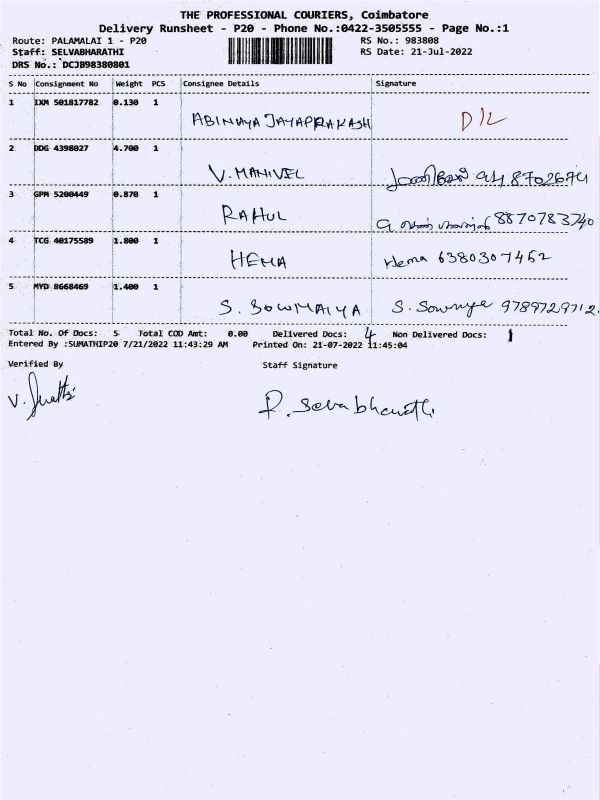 THE PROFESSIONAL COURIERS, Coimbatore
Delivery Runsheet - P20 - Phone No.:0422-3505555 - Page No.:1
Route: PALAMALAI 1 - P20 RS No.: 983808
Staff: SELVABHARATHI RS Date: 21-Jul-2022
DRS No.: DCJB98380801
S No Consignment No Weight PCS Consignee Details Signature
1 IXM 501817782 0.130 1 ABINAYA JAYAPRAKASH D/L
2 DDG 4398027 4.700 1 V. MANIVEL
3 GPM 5200449 0.870 1 RAHUL 8870783740
4 TCG 40175589 1.800 1 HEMA Hema 6380307452
5 MYD 8668469 1.400 1 S. SOWMAIYA S. Sowmya 9789729712
Total No. Of Docs: 5 Total COD Amt: 0.00 Delivered Docs: 4 Non Delivered Docs: 1
Entered By :SUMATHIP20 7/21/2022 11:43:29 AM Printed On: 21-07-2022 11:45:04
Verified By Staff Signature
P. Selvabharathi